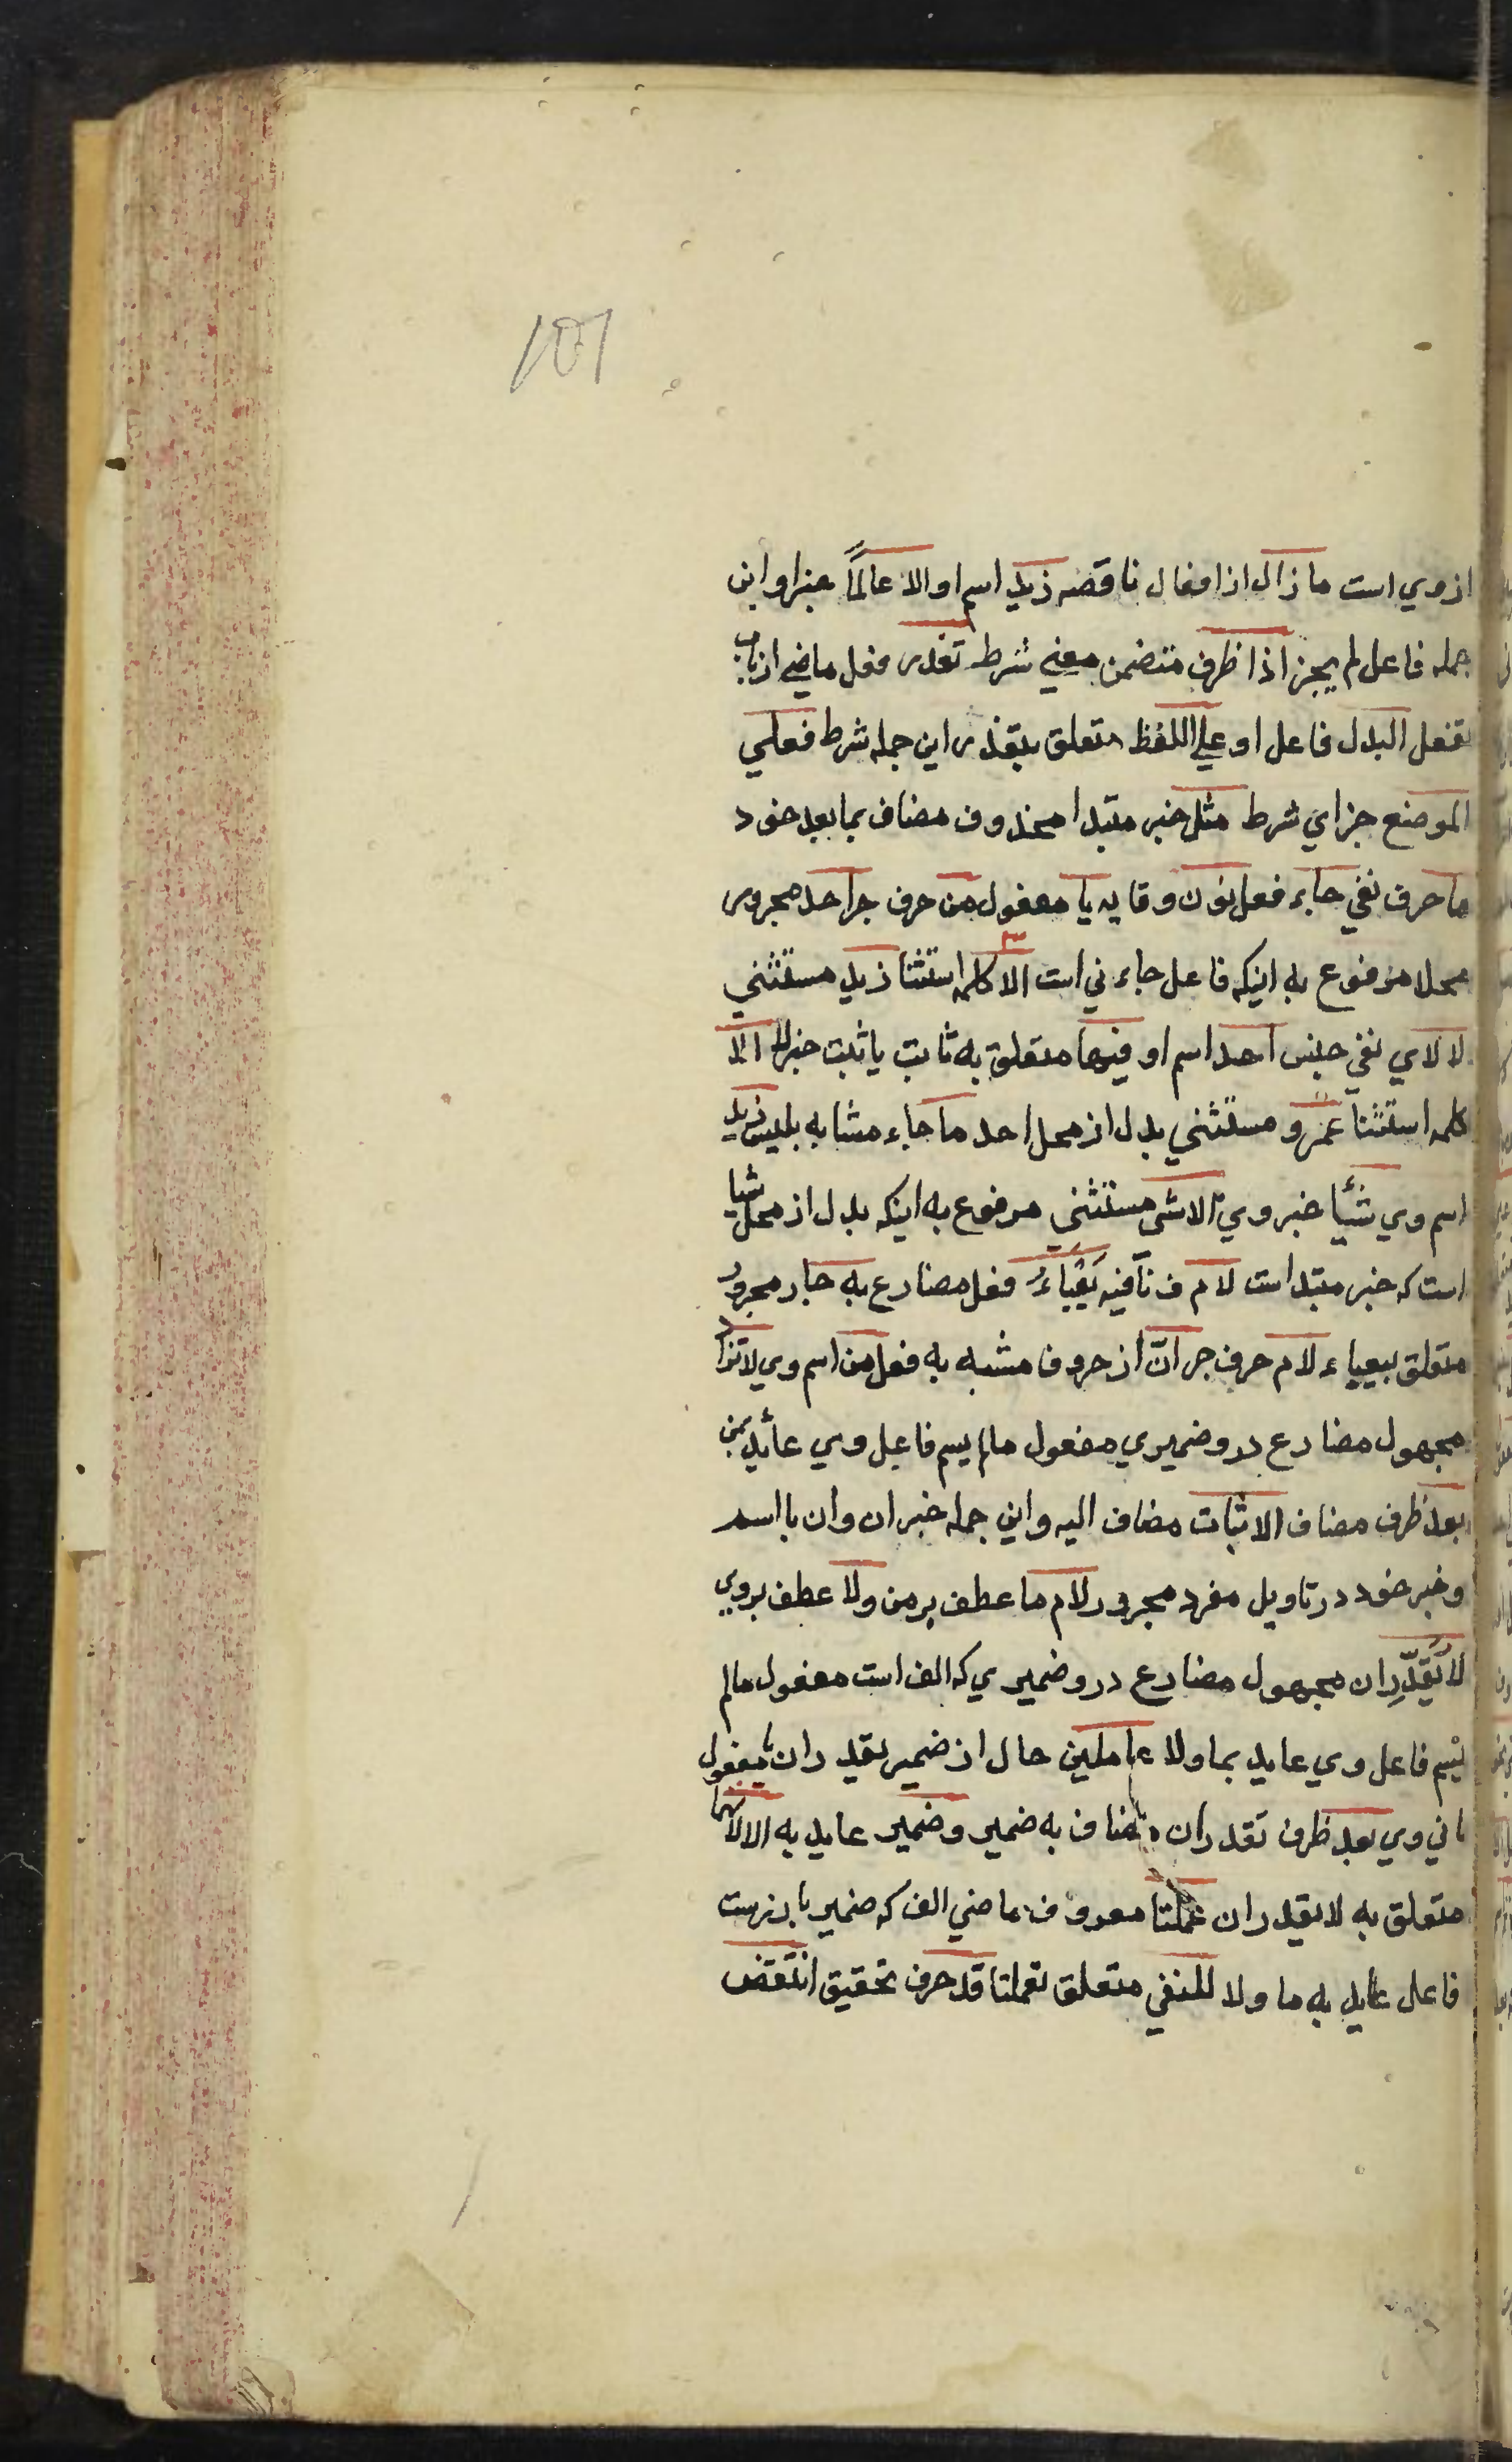 101
ازوي است ما زال از افعال ناقصه زيد اسم او الا عالمًا خبر او اين
جمله فاعل لم يجز اذا ظرف متضمن معني شرط تعذر فعل ماضي از باب
تفعل البدل فاعل او علي اللفظ متعلق بتعذر اين جمله شرط فعلي
الموضع جزاي شرط مثل خبر مبتدا محذوف مضاف بما بعد خود
ما حرف نفي جاء فعل نون وقايه يا مفعول من حرف جر احد مجرور
محلا مرفوع به اينكه فاعل جاء ني است الا كلمه استثنا زيد مستثني
لا لاي نفي جنس احد اسم او فيها متعلق به ثابت يا ثبت خبر لا الا
كلمه استثنا عمرو مستثني بدل از محل احد ما جاء مشابه بليس زيد
اسم وي شيًا خبر وي الا شي مستثني مرفوع به اينكه بدل از محل شيا
است كه خبر مبتدا است لام ف نافيه يعْبَاءُ فعل مضارع به جار مجرور
متعلق بيعباء لام حرف جر انّ از حروف مشبه به فعل من اسم وي لا تزاد
مجهول مضارع درو ضميري مفعول مالم يسم فاعل وي عائد بمن
بعد ظرف مضاف الاثبات مضاف اليه و اين جمله خبر ان و ان با اسم
و خبر خود در تاويل مفرد مجرور لام ما عطف بر من ولا عطف بروي
لا يُقَدَّرِان مجهول مضارع درو ضميري كه الف است مفعول مالم
يسم فاعل وي عايد بما ولا عاملين حال از ضمير يقدران يا مفعول
ثاني وي بعد ظرف تقدران مضاف به ضمير و ضمير عايد به الا لانهما
متعلق به لا يقدران عملتا معروف ماضي الف كه ضمير بارزست
فاعل عايد به ما ولا للنفي متعلق بعملتا قد حرف تحقيق انتقض